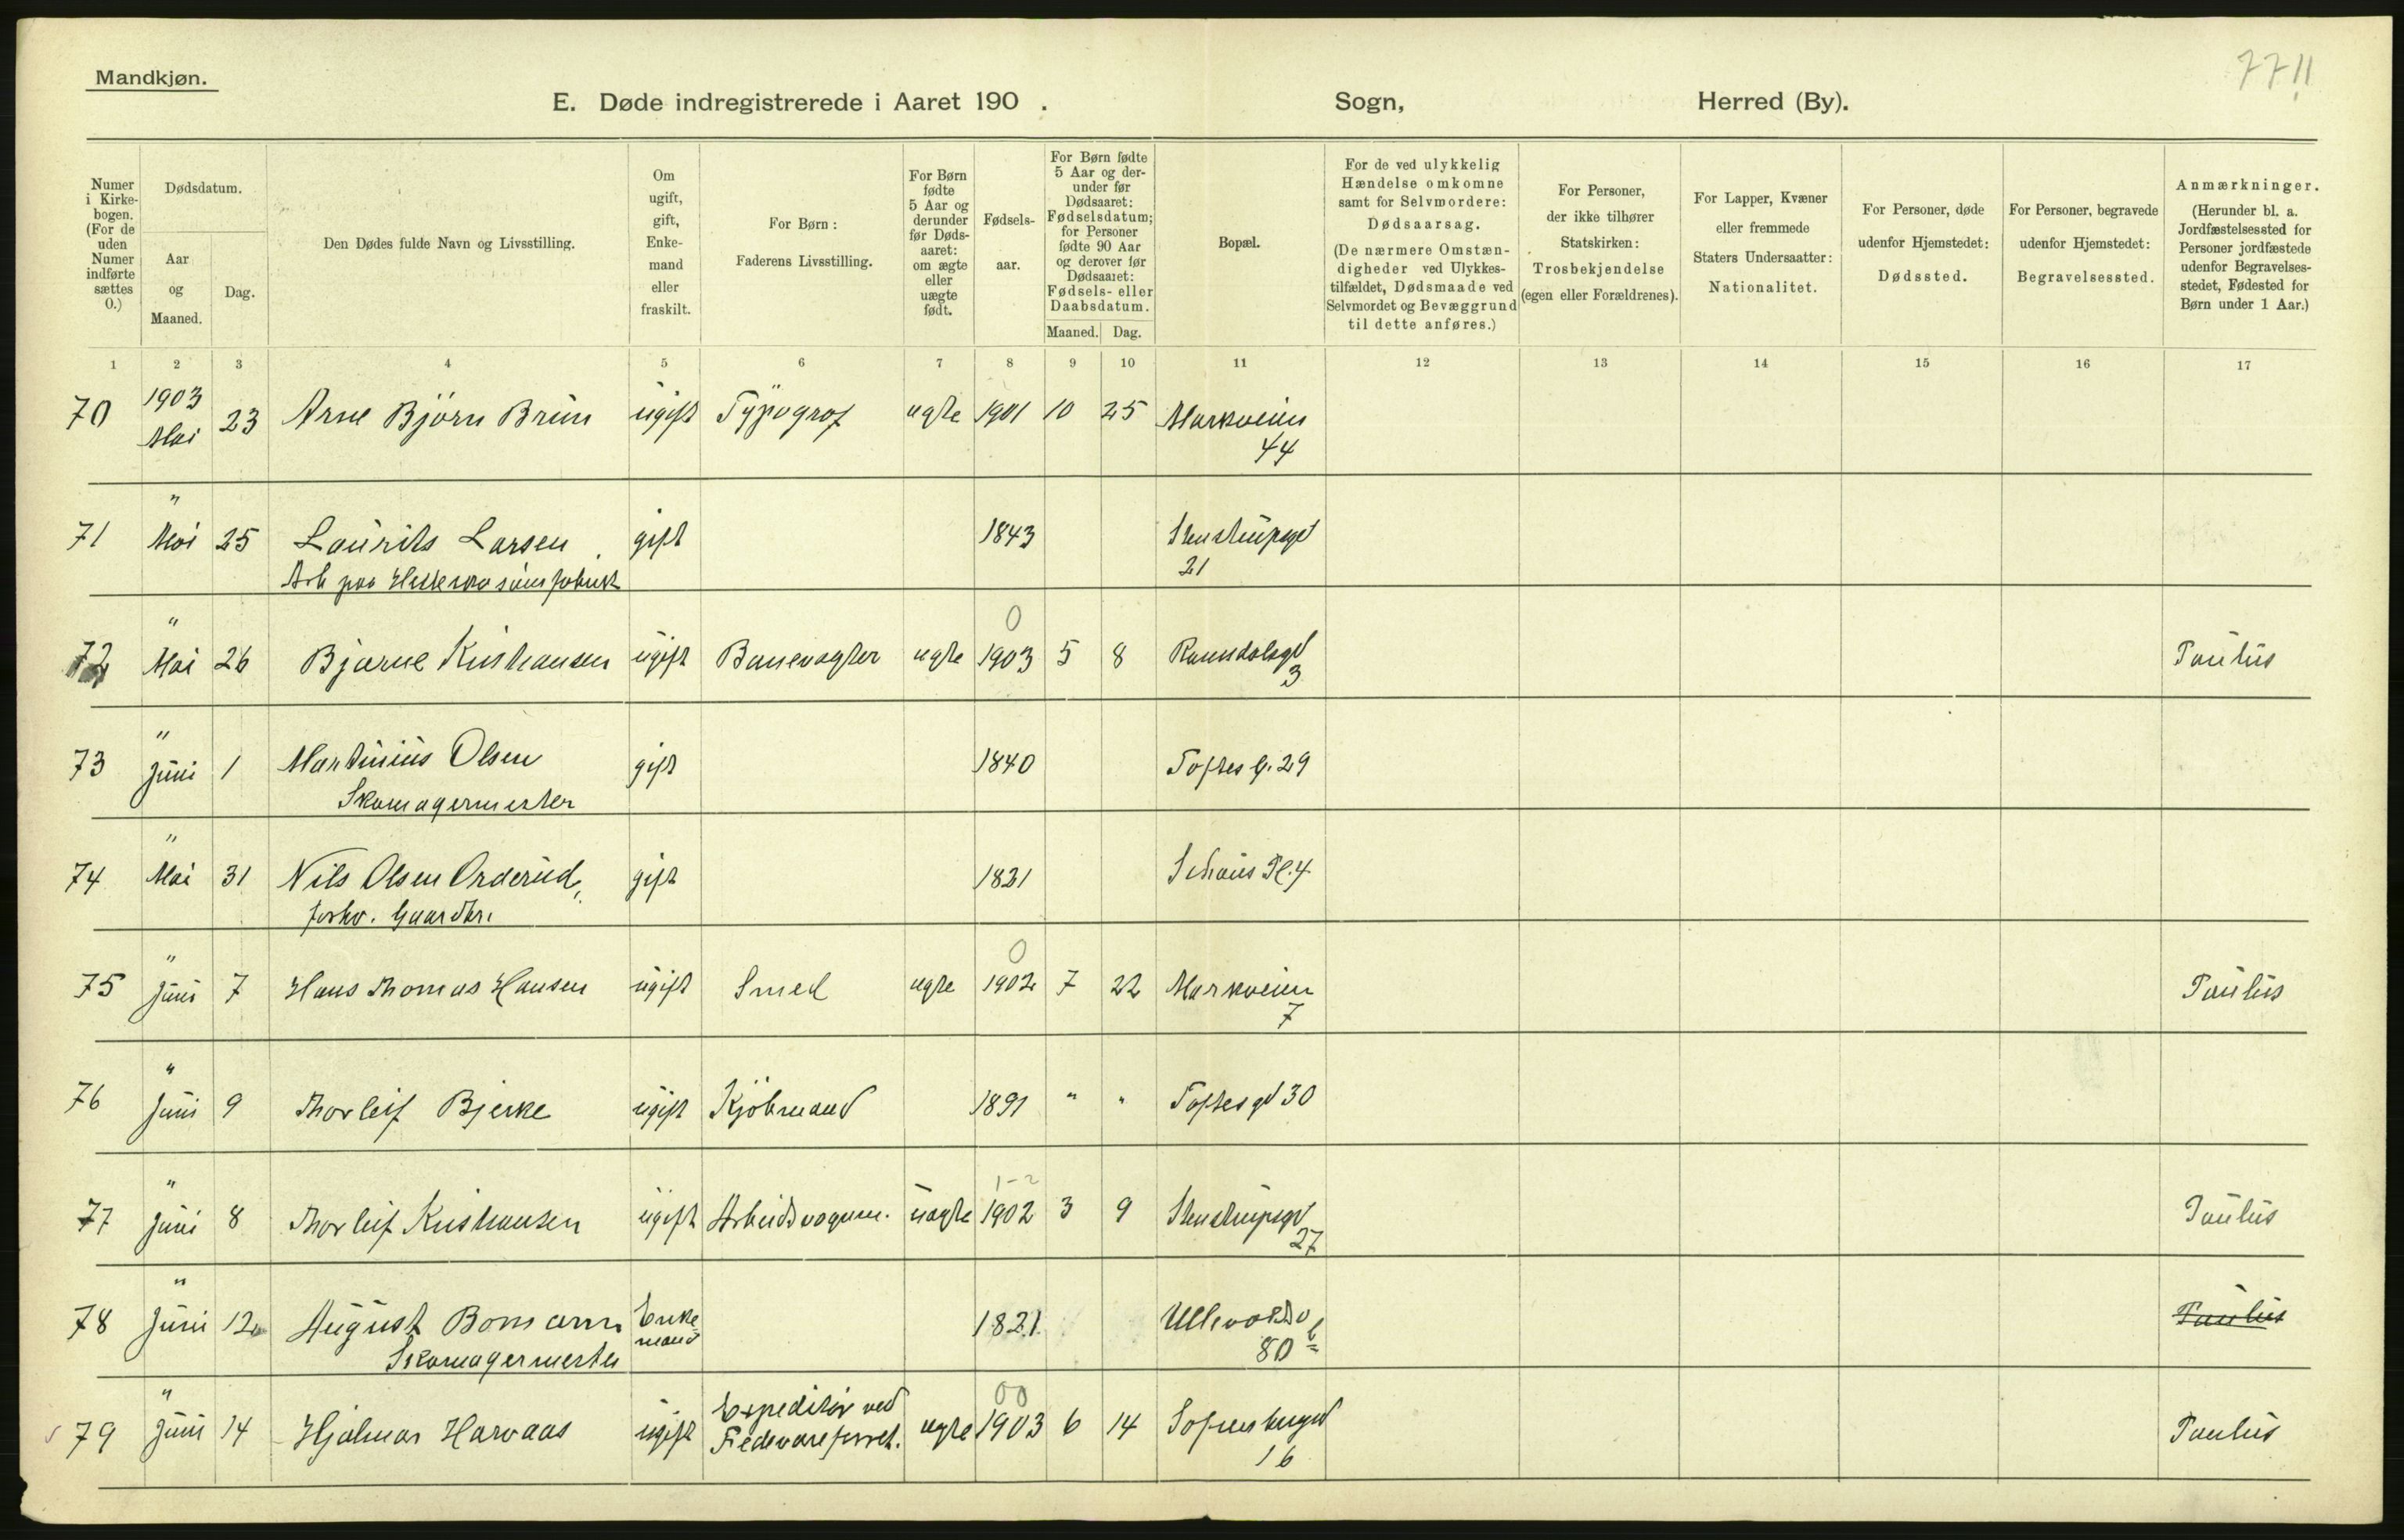 Mandkjøn.
7711
E. Døde indregistrerede i Aaret 190 . Sogn, Herred (By).
Numer i Kirkebogen. (For de uden Numer indførte sættes 0.)
Dødsdatum.
Aar og Maaned.
Dag.
Den Dødes fulde Navn og Livsstilling.
Om ugift, gift, Enkemand eller fraskilt.
For Børn: Faderens Livsstilling.
For Børn fødte 5 Aar og derunder før Dødsaaret: om ægte eller uægte født.
Fødselsaar.
For Børn fødte 5 Aar og derunder før Dødsaaret: Fødselsdatum; for Personer fødte 90 Aar og derover før Dødsaaret: Fødsels- eller Daabsdatum.
Maaned. Dag.
Bopæl.
For de ved ulykkelig Hændelse omkomne samt for Selvmordere: Dødsaarsag. (De nærmere Omstændigheder ved Ulykkestilfældet, Dødsmaade ved Selvmordet og Bevæggrund til dette anføres.)
For Personer, der ikke tilhører Statskirken: Trosbekjendelse (egen eller Forældrenes).
For Lapper, Kvæner eller fremmede Staters Undersaatter: Nationalitet.
For Personer, døde udenfor Hjemstedet: Dødssted.
For Personer, begravede udenfor Hjemstedet: Begravelsessted.
Anmærkninger. (Herunder bl. a. Jordfæstelsessted for Personer jordfæstede udenfor Begravelsesstedet, Fødested for Børn under 1 Aar.)
1 2 3 4 5 6 7 8 9 10 11 12 13 14 15 16 17
70 1903 Mai 23 Arne Bjørn Brun ugift Typograf ægte 1901 10 25 Markveien 44
71 " Mai 25 Laurits Larsen gift 1843 Stenstrupsgd 21
Arb paa Hesteskosømfabrik
0
72 " Mai 26 Bjarne Kristiansen ugift Banevogter ægte 1903 5 8 Raumsdalsgd 3 Paulus
73 " Juni 1 Martinius Olsen gift 1840 Toftes G. 29
Skomagermester
74 " Mai 31 Nils Olsen Orderud, gift 1821 Schous Pl. 4
forhv. Gaardbr.
0
75 " Juni 7 Hans Thomas Hansen ugift Smed ægte 1902 7 22 Markveien 7 Paulus
76 " Juni 9 Thorleif Bjerke ugift Kjøbmand 1891 " " Toftesgd 30
1-2
77 " Juni 8 Thorleif Kristiansen ugift Arbeidsvognm. uægte 1902 3 9 Stenstrupsgd 27 Paulus
78 " Juni 12 August Bomann Enkemand 1821 Ullevoldsv 80 b Paulus
Skomagermester
00
79 " Juni 14 Hjalmar Harvaas ugift Expeditør ved Fedevareforret. ægte 1903 6 14 Sofienberggd 16 Paulus